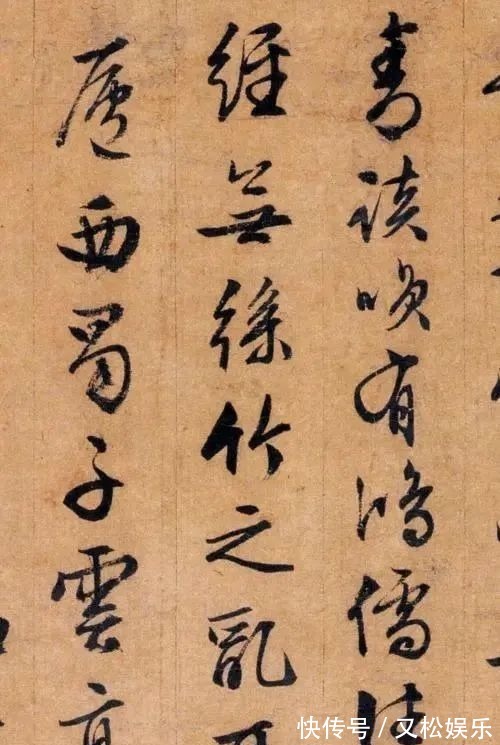 青談咲有鴻儒往
經無絲竹之亂
廬西蜀子雲亭
快传号/又松娱乐